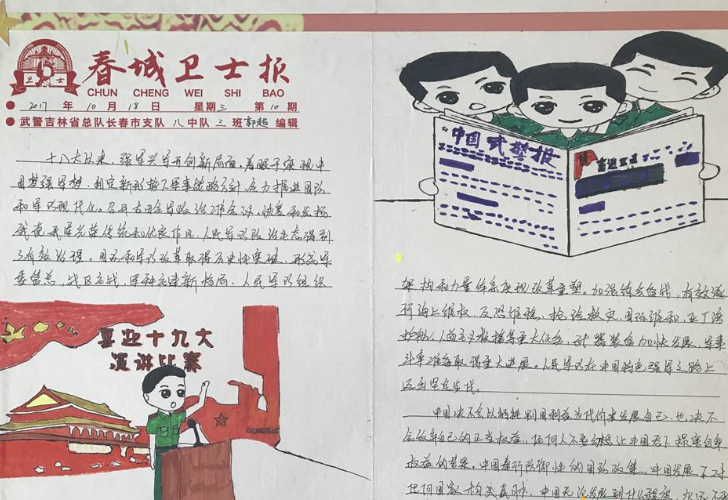 春城卫士报
CHUN CHENG WEI SHI BAO
卫 士
2017 年 10 月 18 日 星期三 第10期
武警吉林省总队长春市支队 八中队 三班郭超 编辑
十八大以来，强军兴军开创新局面，着眼于实现中
国梦强军梦，制定新形势下军事战略方针，全力推进国防
和军队现代化。召开古田全军政治工作会议，恢复和发扬
我党我军光荣传统和优良作风，人民军队政治生态得到
了有效治理。国防和军队改革取得历史性突破，形成军
委管总、战区主战、军种主建新格局，人民军队组织
喜迎十九大
演讲比赛
中国武警报
架构和力量体系实现革命重塑。加强练兵备战，有效遂
行海上维权、反恐维稳、抢险救灾、国际维和、亚丁湾
护航、人道主义救援等重大任务，武器装备加快发展，军事
斗争准备取得重大进展。人民军队在中国特色强军之路上
迈出坚定步伐。
中国决不会以牺牲别国利益为代价来发展自己，也决不
会放弃自己的正当权益，任何人不要幻想让中国吞下损害自身
权益的苦果。中国奉行防御性的国防政策。中国发展不对
任何国家构成威胁。中国无论发展到什么程度，永远